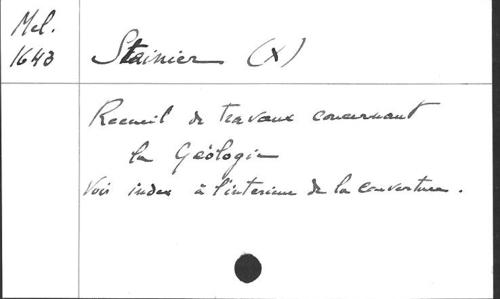 Mel.
1643
Stainier (X)
Recueil de travaux concernant
la Géologie
Voir index à l'interieur de la couverture.